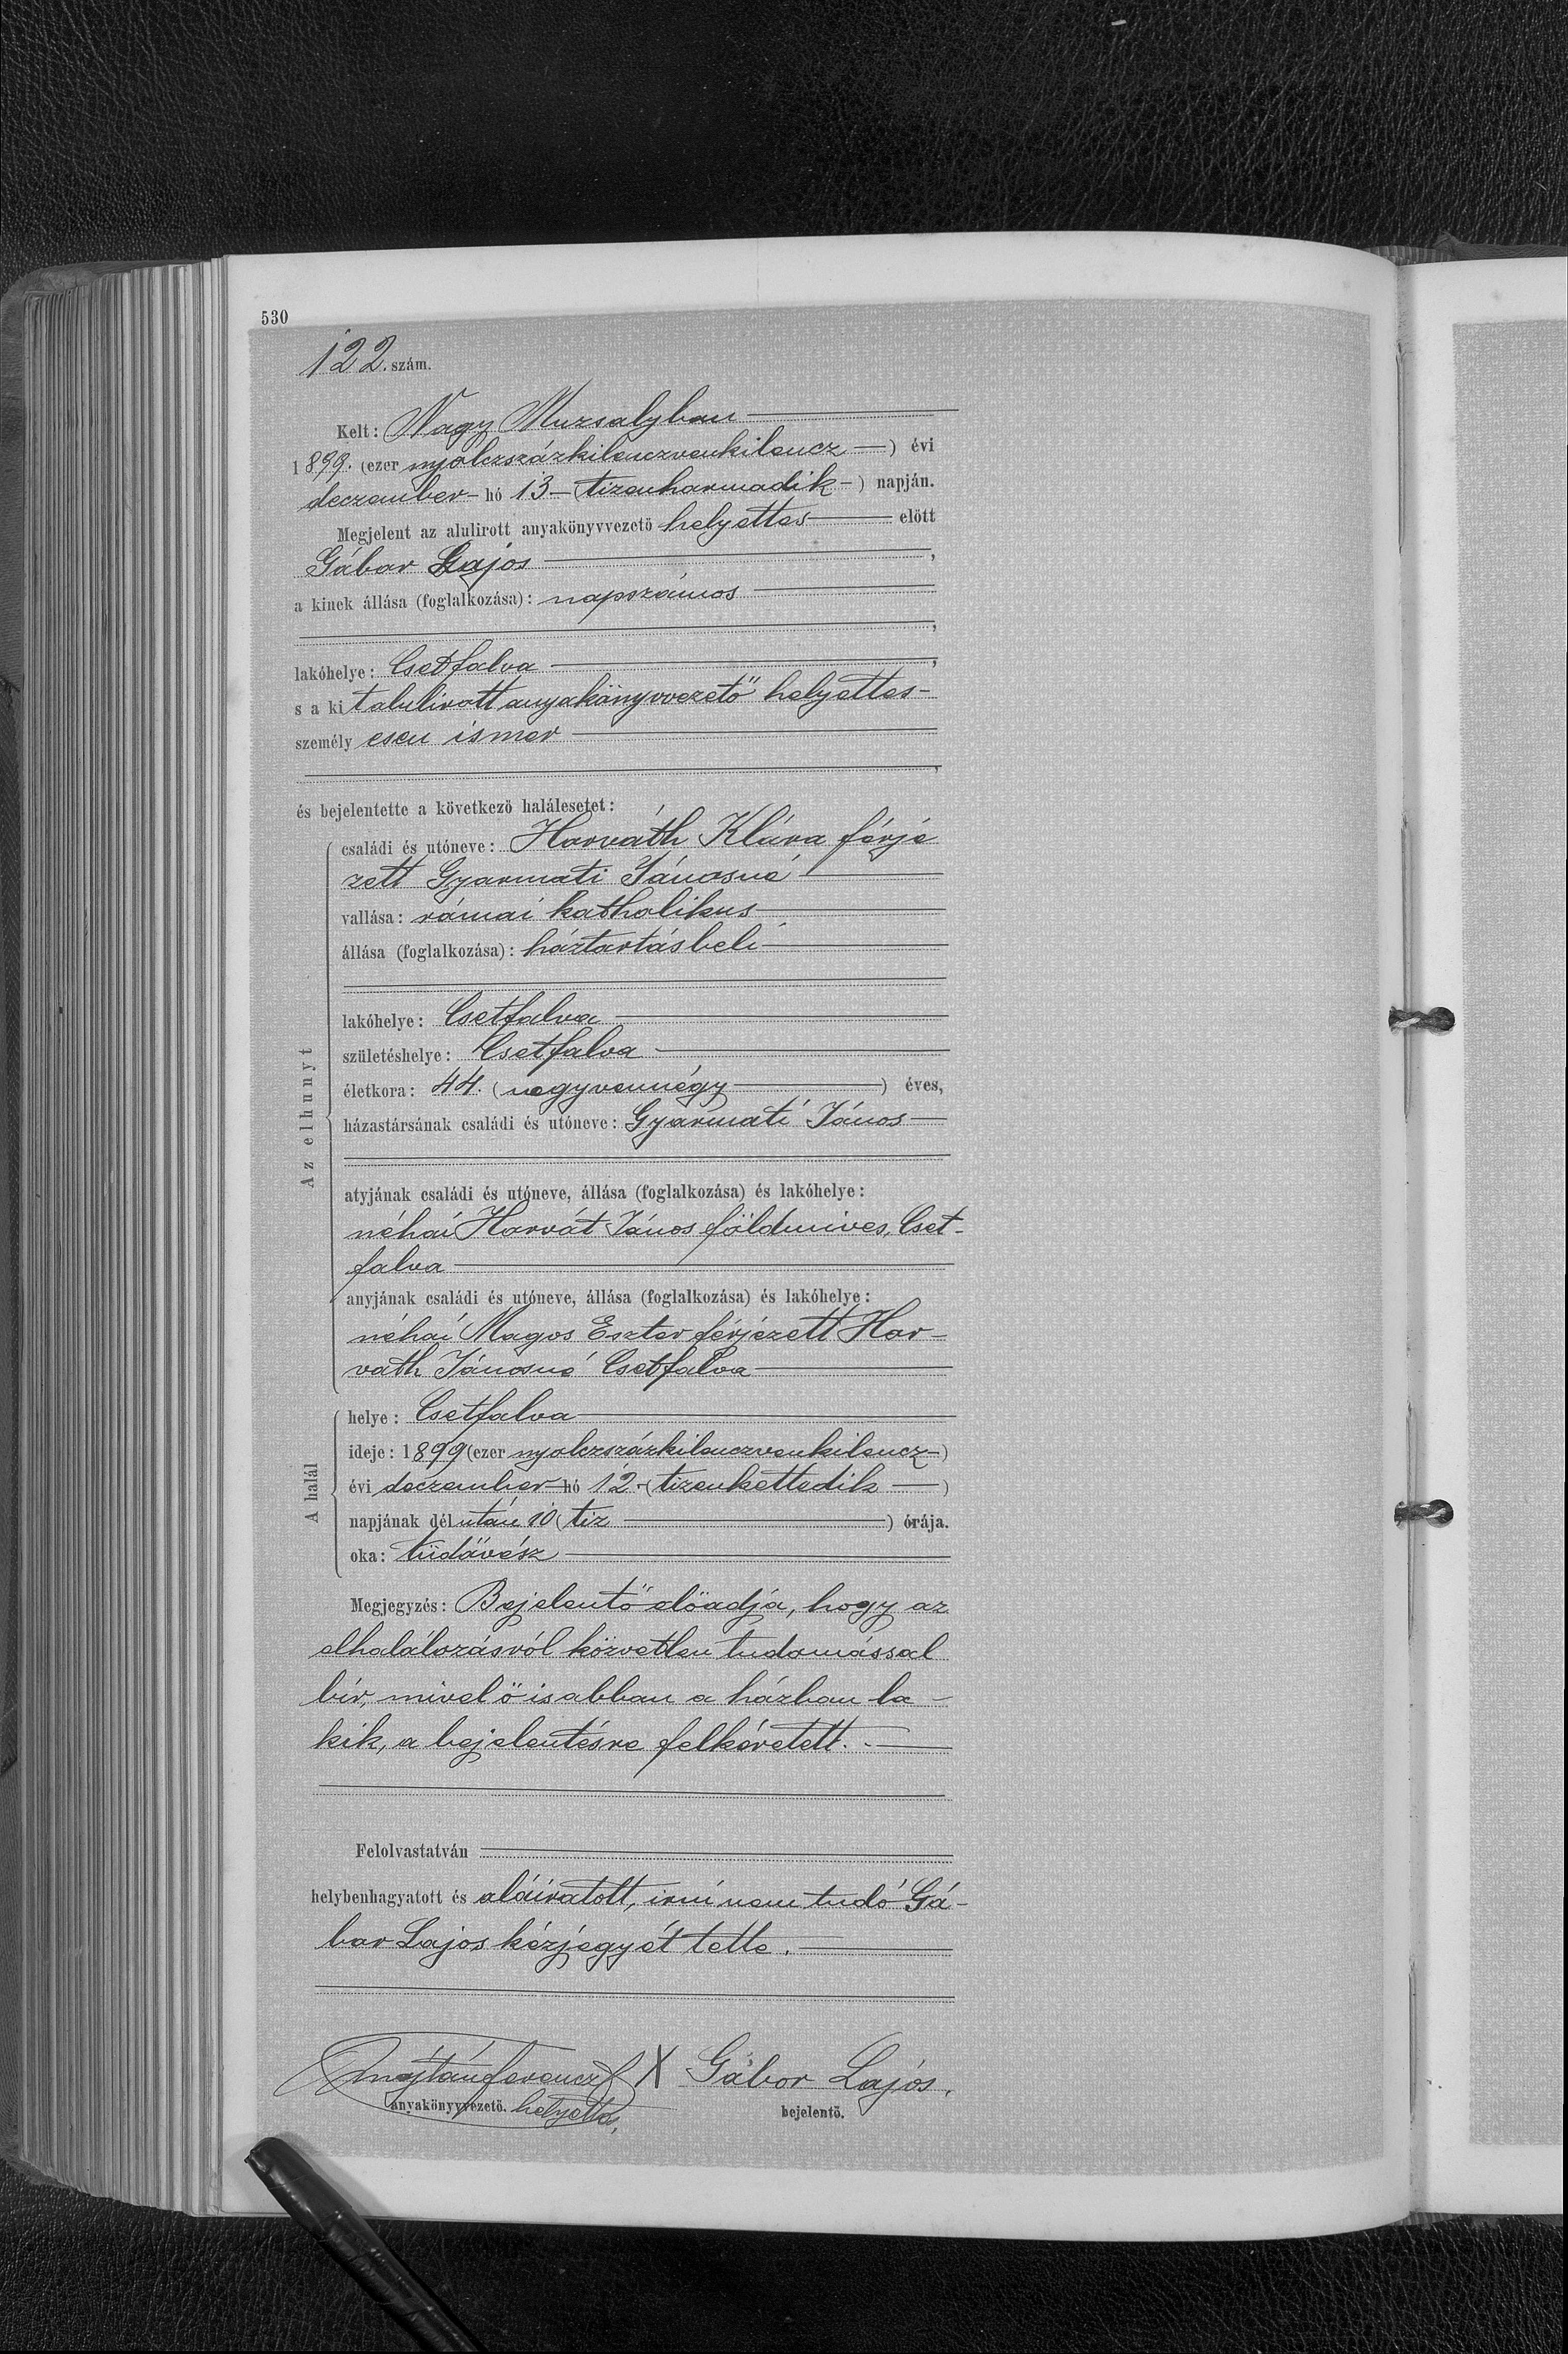 530
122. szám.
Kelt: Nagy Muzsalyban
1899. (ezer nyolczszázkilenczvenkilencz) évi
deczember hó 13 (tizenharmadik) napján.
Megjelent az alulirott anyakönyvvezető helyettes előtt
Gábor Lajos,
a kinek állása (foglalkozása): napszámos
,
lakóhelye: Csetfalva,
s a kit alulirott anyakönyvvezető helyettes
személyesen ismer
,
és bejelentette a következő halálesetet:
Az elhunyt
családi és utóneve: Horváth Klára férje
zett Gyarmati Jánosné
vallása: római katholikus
állása (foglalkozása): háztartásbeli
lakóhelye: Csetfalva
születéshelye: Csetfalva
életkora: 44. (negyvennégy) éves,
házastársának családi és utóneve: Gyarmati János
atyjának családi és utóneve, állása (foglalkozása) és lakóhelye:
néhai Horvát János földmives, Cset-
falva
anyjának családi és utóneve, állása (foglalkozása) és lakóhelye:
néhai Magos Eszter férjezett Hor-
vath Jánosné Csetfalva
A halál
helye: Csetfalva
ideje: 1899 (ezer nyolczszázkilenczvenkilencz)
évi deczember hó 12. (tizenkettedik)
napjának délután 10 (tiz) órája.
oka: tüdővész
Megjegyzés: Bejelentő előadja, hogy az
elhalálozásról közvetlen tudomással
bir, mivel ő is abban a házban la-
kik, a bejelentésre felkéretett.
Felolvastatván
helybenhagyatott és aláiratott, irni nem tudó Gá-
bor Lajos kézjegyét tette.
Ferencz X Gábor Lajos.
anyakönyvvezető. helyettes, bejelentő.